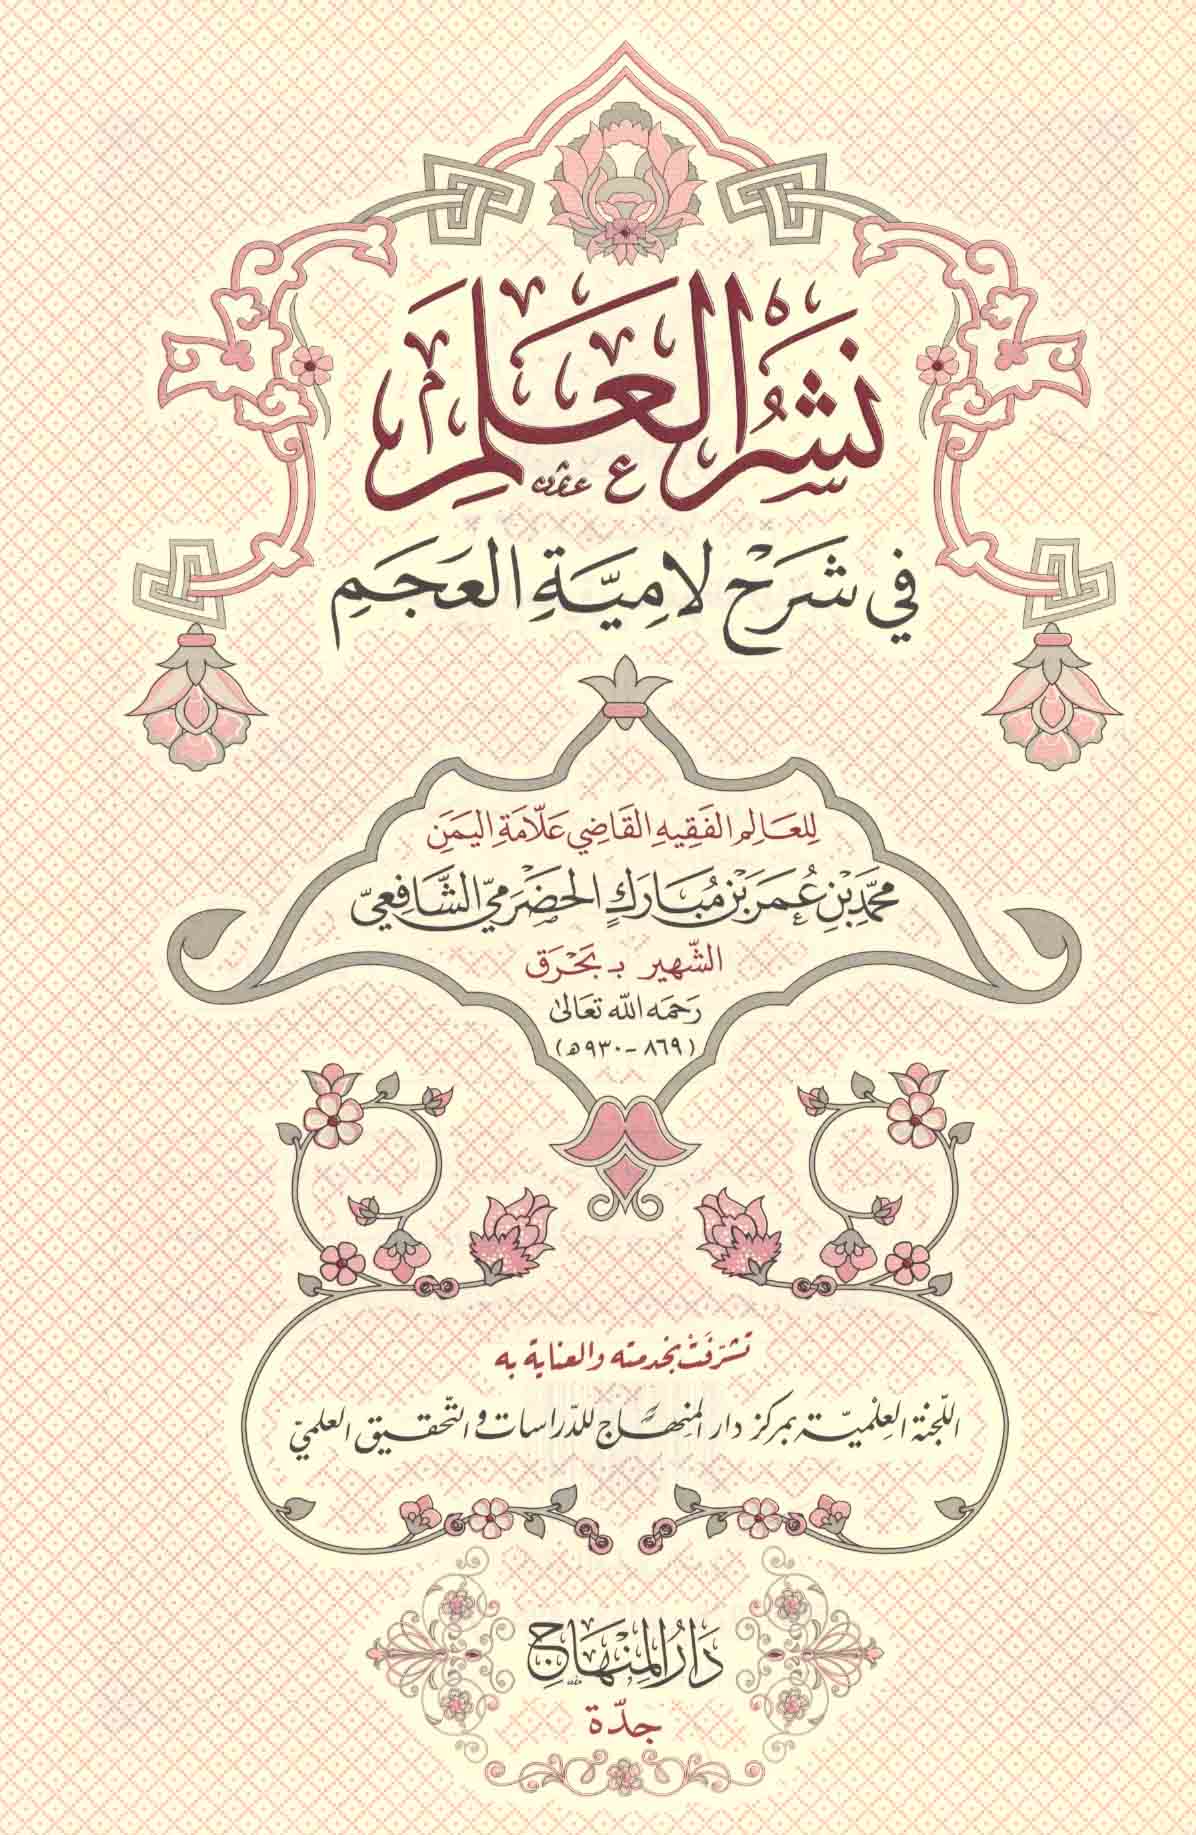 نَشْرُ العَلَمِ
في شَرْحِ لَامِيَّةِ العَجَمِ
لِلعَالِم الفَقِيهِ القَاضِي عَلَّامَةِ اليَمَنِ
محمَّد بْنِ عُمَر بْنِ مُبَارَكٍ الحَضْرَمِيِّ الشَّافِعِيِّ
الشّهير بـ بَحْرَق
رَحِمَه اللّه تعَالى
(٨٦٩ - ٩٣٠ هـ)
تشرّفَتْ بخدمته والعناية به
اللّجنة العِلْميّة بمركز دار المِنهَاج للدّراسات والتّحقيق العلميّ
دَارُ المِنْهَاجِ
جدّة